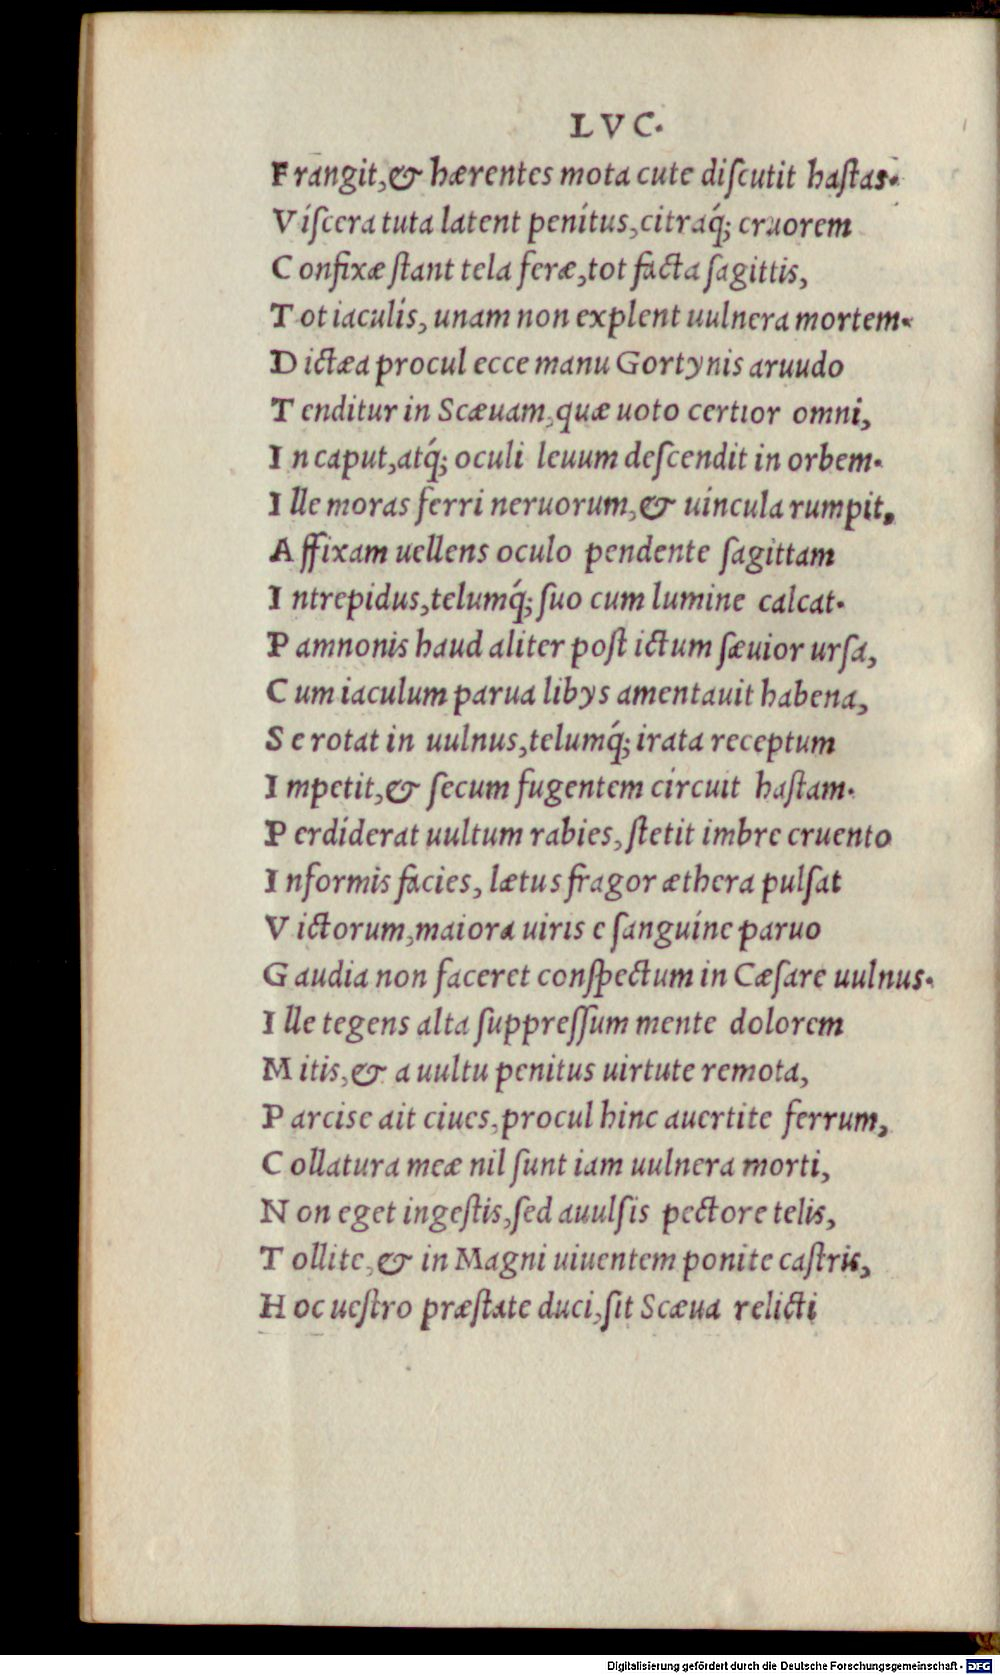 LVC.
Frangit,& hærentes mota cute diſcutit haſtas.
Viſcera tuta latent penitus,citraq́; cruorem
Confixæ ſtant tela feræ,tot facta ſagittis,
Tot iaculis, unam non explent uulnera mortem.
Dictæa procul ecce manu Gortynis aruudo
Tenditur in Scæuam,quæ uoto certior omni,
In caput,atq́; oculi leuum deſcendit in orbem.
Ille moras ferri neruorum,& uincula rumpit,
Affixam uellens oculo pendente ſagittam
Intrepidus,telumq́; ſuo cum lumine calcat.
Pamnonis haud aliter poſt ictum ſæuior urſa,
Cum iaculum parua libys amentauit habena,
Se rotat in uulnus,telumq́; irata receptum
Impetit,& ſecum fugentem circuit haſtam.
Perdiderat uultum rabies, ſtetit imbre cruento
Informis facies, lætus fragor æthera pulſat
Victorum,maiora uiris e ſanguine paruo
Gaudia non faceret conſpectum in Cæſare uulnus.
Ille tegens alta ſuppreſſum mente dolorem
Mitis,& a uultu penitus uirtute remota,
Parcise ait ciues,procul hinc auertite ferrum,
Collatura meæ nil ſunt iam uulnera morti,
Non eget ingeſtis,ſed auulſis pectore telis,
Tollite,& in Magni uiuentem ponite caſtris,
Hoc ueſtro præſtate duci,ſit Scæua relicti
Digitalisierung gefördert durch die Deutsche Forschungsgemeinschaft - DFG